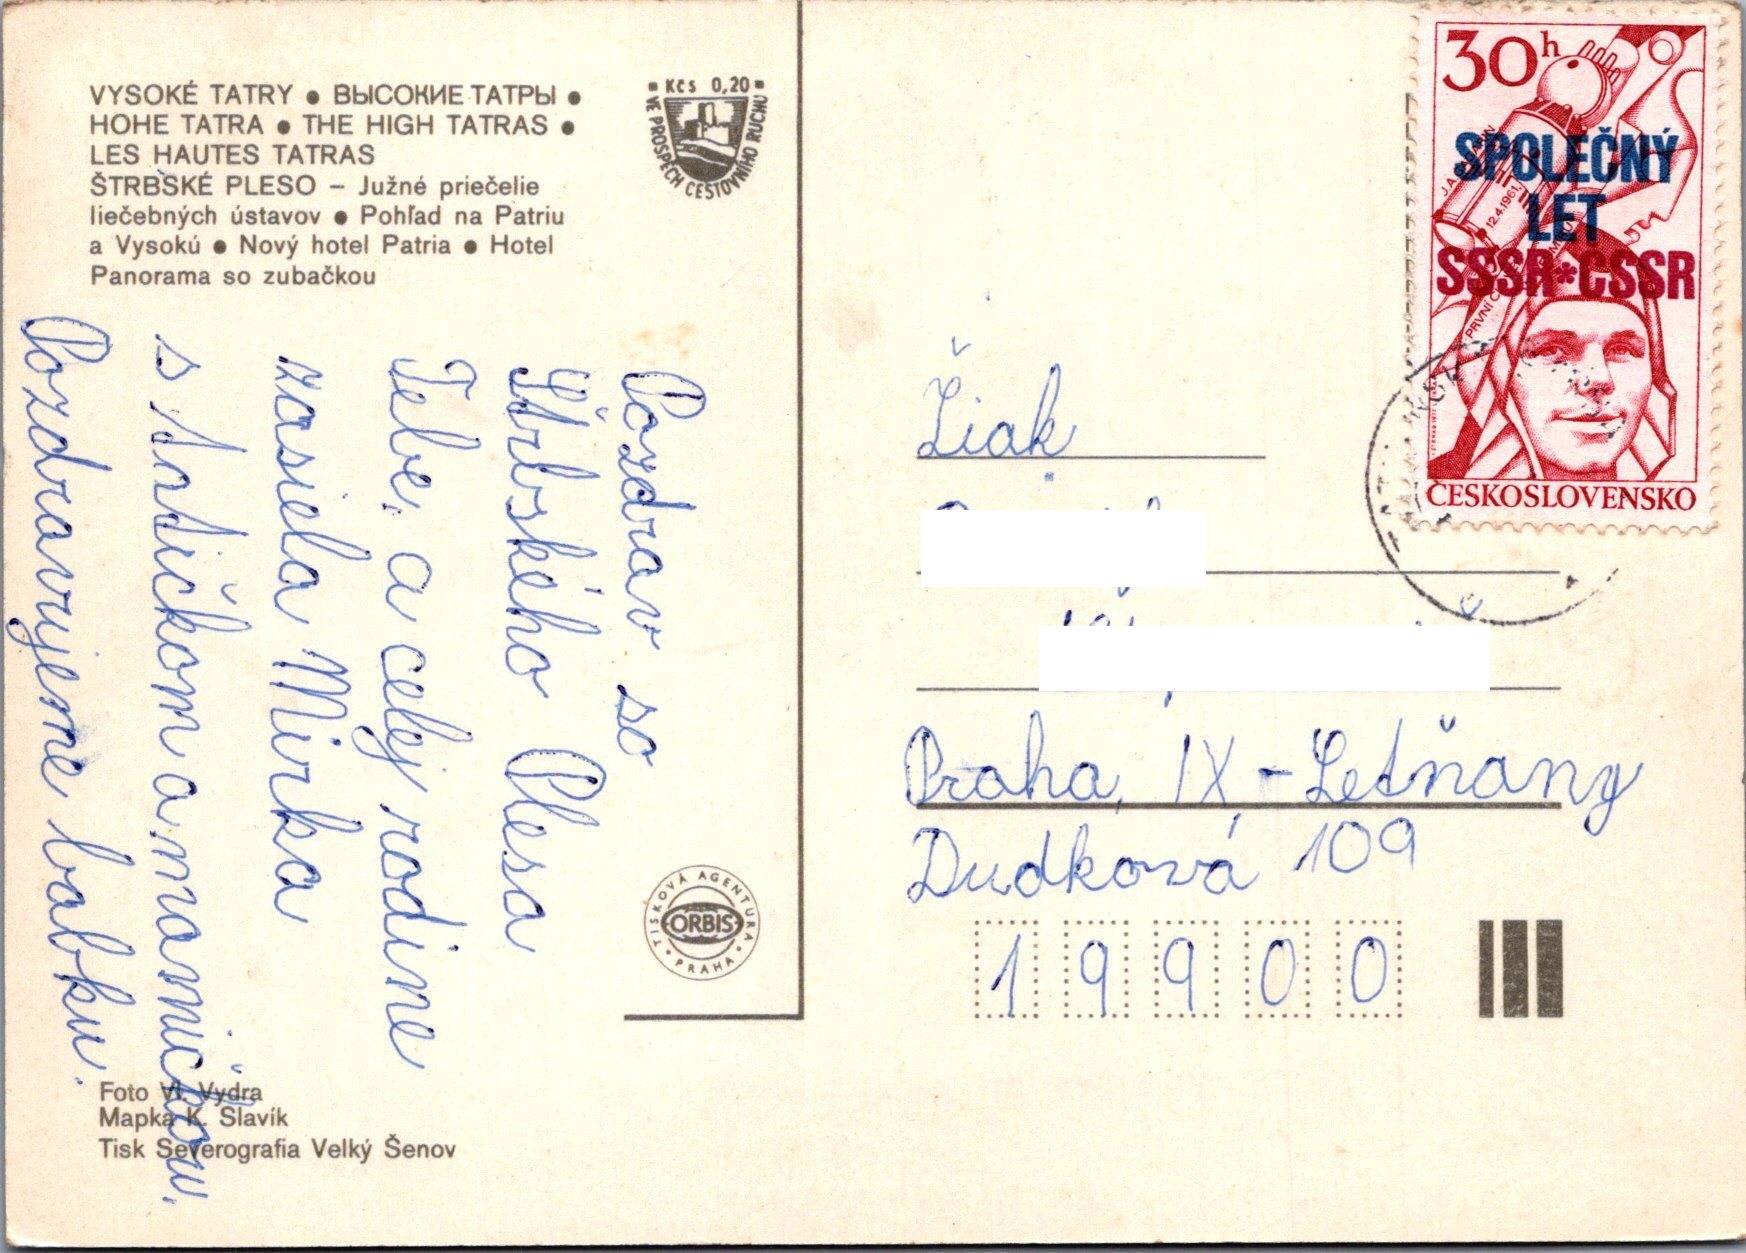 VYSOKÉ TATRY ● ВЫСОКИЕ ТАТРЫ ●
HOHE TATRA ● THE HIGH TATRAS ●
LES HAUTES TATRAS
ŠTRBSKÉ PLESO – Južné priečelie
liečebných ústavov ● Pohľad na Patriu
a Vysokú ● Nový hotel Patria ● Hotel
Panorama so zubačkou
Kčs 0,20
VE PROSPĚCH CESTOVNÍHO RUCHU
Pozdrav so
Štrbského Plesa
Tebe, a celej rodine
zasiela Mirka
s
a mamičkou.
Pozdravujeme babku.
TISKOVÁ AGENTURA
ORBIS
PRAHA
Foto Vl. Vydra
Mapka K. Slavík
Tisk Severografia Velký Šenov
30h
SPOLEČNÝ
LET
SSSR*ČSSR
J.A. GAGARIN
12.4.1961
PRVNÍ
ČESKOSLOVENSKO
Žiak
Praha, IX - Letňany
Dudková 109
19900